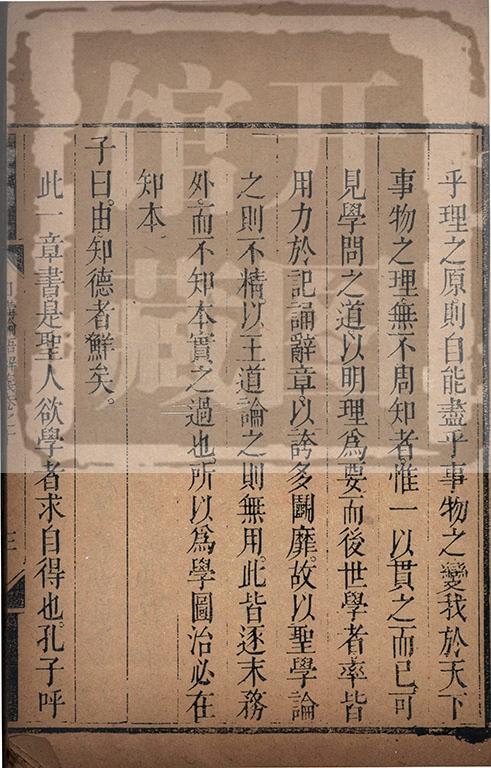 乎理之原則自能盡乎事物之變我於天下
事物之理無不周知者惟一以貫之而已可
見學問之道以明理為要而後世學者率皆
用力於記誦辭章以誇多鬬靡故以聖學論
之則不精以王道論之則無用此皆逐末務
外而不知本實之過也所以為學圖治必在
知本
子曰由知德者鮮矣
此一章書是聖人欲學者求自得也孔子呼